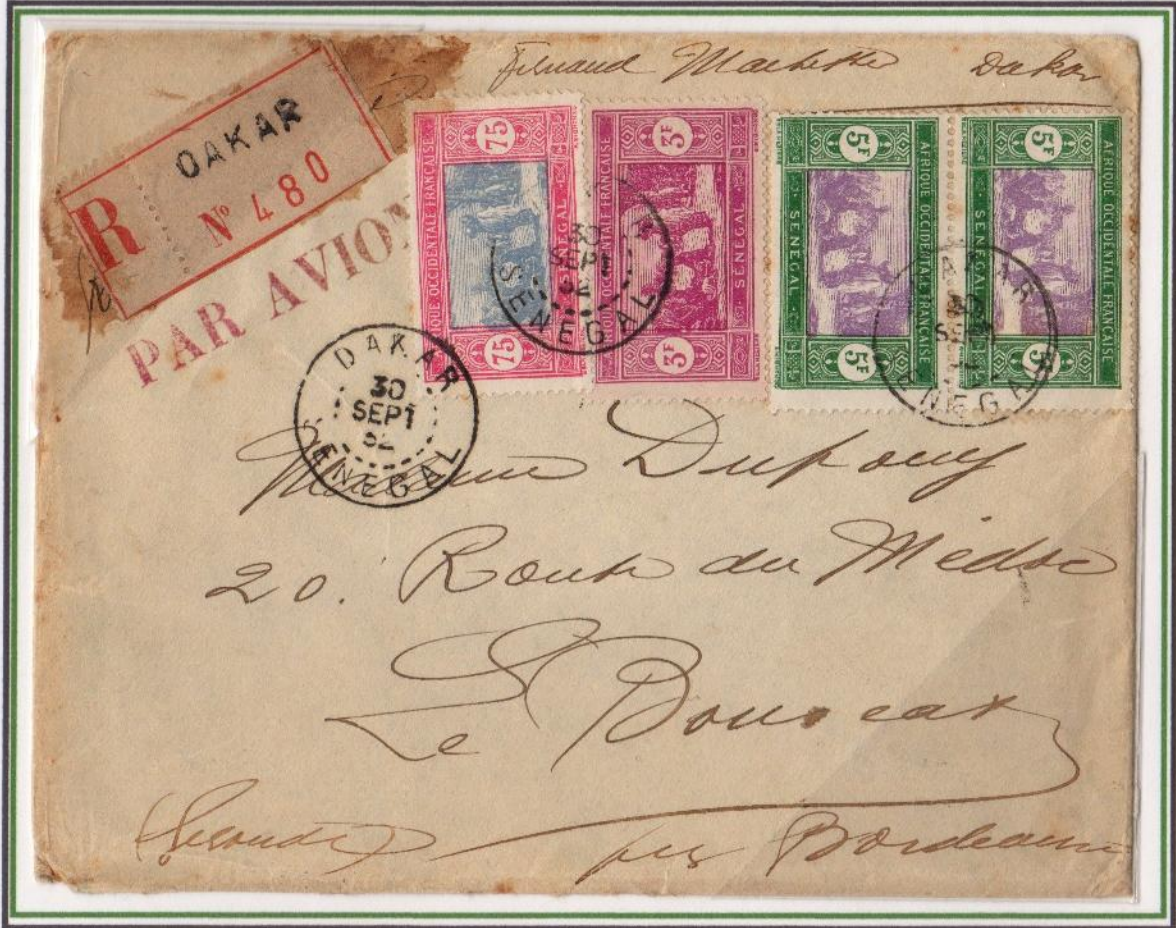 Fernand Dakar
R DAKAR
Nº 480
PAR AVION
75 AFRIQUE OCCIDENTALE FRANÇAISE SENEGAL 75
3F AFRIQUE OCCIDENTALE FRANÇAISE SENEGAL 3F
5F AFRIQUE OCCIDENTALE FRANÇAISE SENEGAL 5F
5F AFRIQUE OCCIDENTALE FRANÇAISE SENEGAL 5F
DAKAR
30
SEPT
32
SENEGAL
DAKAR
30
SEPT
32
SENEGAL
DAKAR
30
SEPT
SENEGAL
Madame Dupouy
20. Route du Médoc
Le Bouscat
(Gironde) près Bordeaux